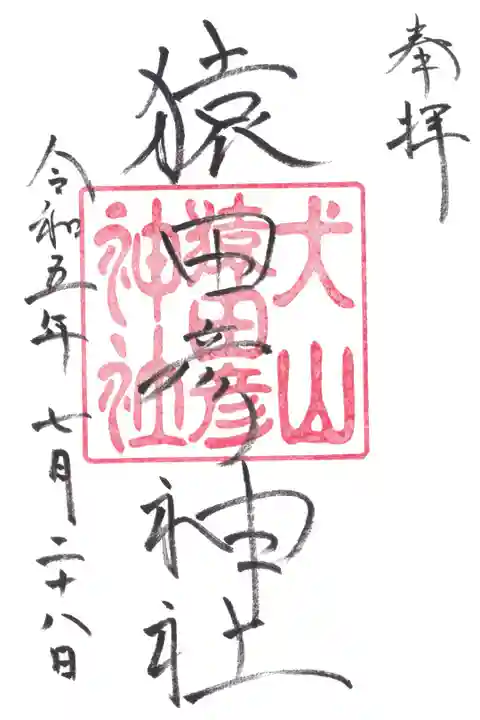 奉拝
猿田彦神社
犬山
猿田彦
神社
令和五年 七月二十八日